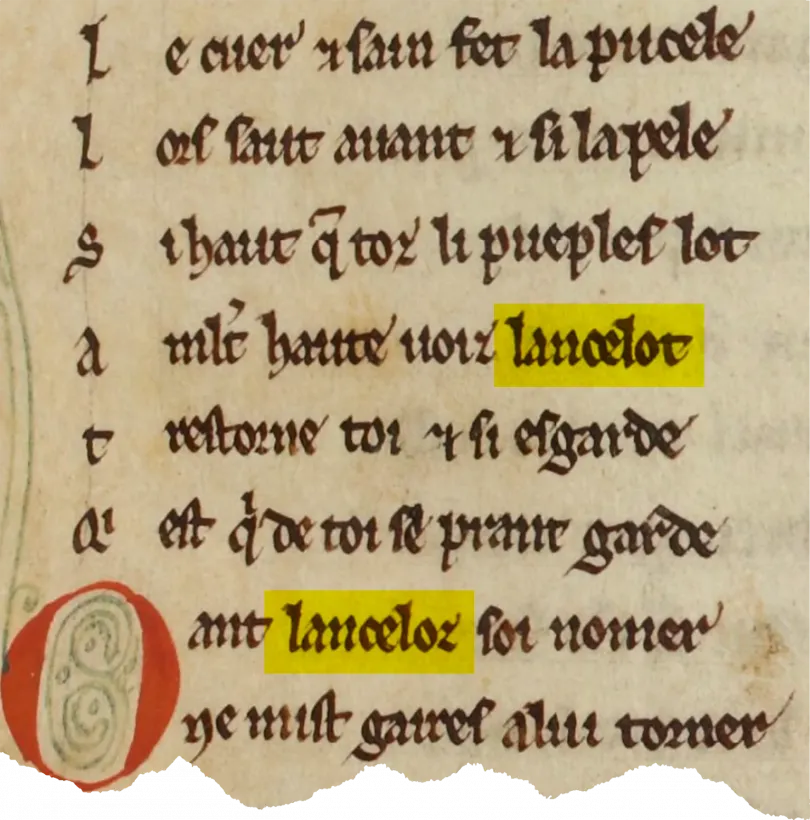 L e cuer ⁊ sain fet la pucele
L ors saut auant ⁊ si lapele
S i haut q̄ toz li pueples lot
A mlt̓ haute uoiz lancelot
T restorne toi ⁊ si esgarde
Qi est qͥ de toi se prant garde
Qant lanceloz soi nomer
ne mist gaires a lui torner